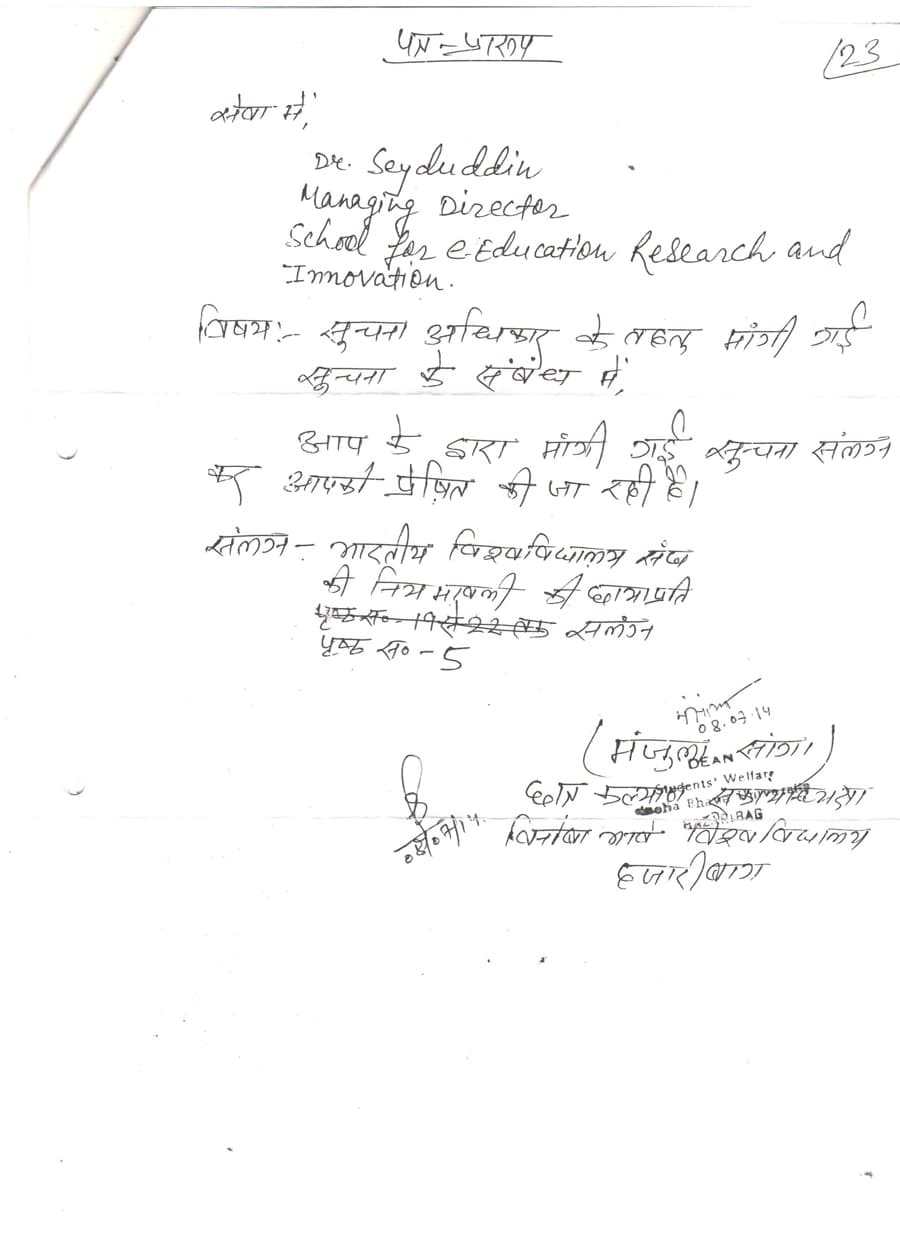 पत्र - प्रारूप
123
सेवा में,
Dr. Seyduddin
Managing Director
School for e-Education Research and
Innovation.
विषय:- सुचना अधिकार के तहत् मांगी गई
सुचना के संबंध में,
आप के द्वारा मांगी गई सुचना संलग्न
कर आपको प्रेषित की जा रही है।
संलग्न - भारतीय विश्वविद्यालय संघ
की नियमावली की छायाप्रति
पृष्ठ स० - 19 से 22 तक सलंग्न
पृष्ठ स० - 5
08.07.14
(मंजुला सांगा)
DEAN
छात्र कल्याण संकायाध्यक्षा
Students' Welfare
विनोबा भावे विश्वविद्यालय
08/07/14
हजारीबाग